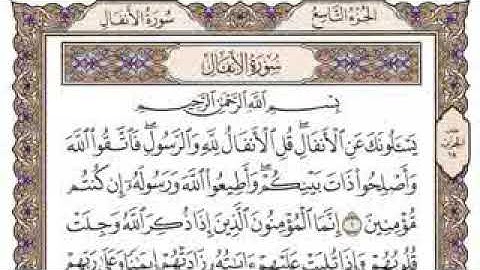 سُورَةُ الأَنفَالِ
الجُزْءُ التَّاسِعُ
سُورَةُ الأَنفَالِ
بِسْمِ اللَّهِ الرَّحْمَٰنِ الرَّحِيمِ
يَسْـَٔلُونَكَ عَنِ الْأَنفَالِ ۖ قُلِ الْأَنفَالُ لِلَّهِ وَالرَّسُولِ ۖ فَاتَّقُوا اللَّهَ
وَأَصْلِحُوا ذَاتَ بَيْنِكُمْ ۖ وَأَطِيعُوا اللَّهَ وَرَسُولَهُ إِن كُنتُم
مُّؤْمِنِينَ ١ إِنَّمَا الْمُؤْمِنُونَ الَّذِينَ إِذَا ذُكِرَ اللَّهُ وَجِلَتْ
قُلُوبُهُمْ وَإِذَا تُلِيَتْ عَلَيْهِمْ ءَايَٰتُهُ زَادَتْهُمْ إِيمَٰنًا وَعَلَىٰ رَبِّهِمْ